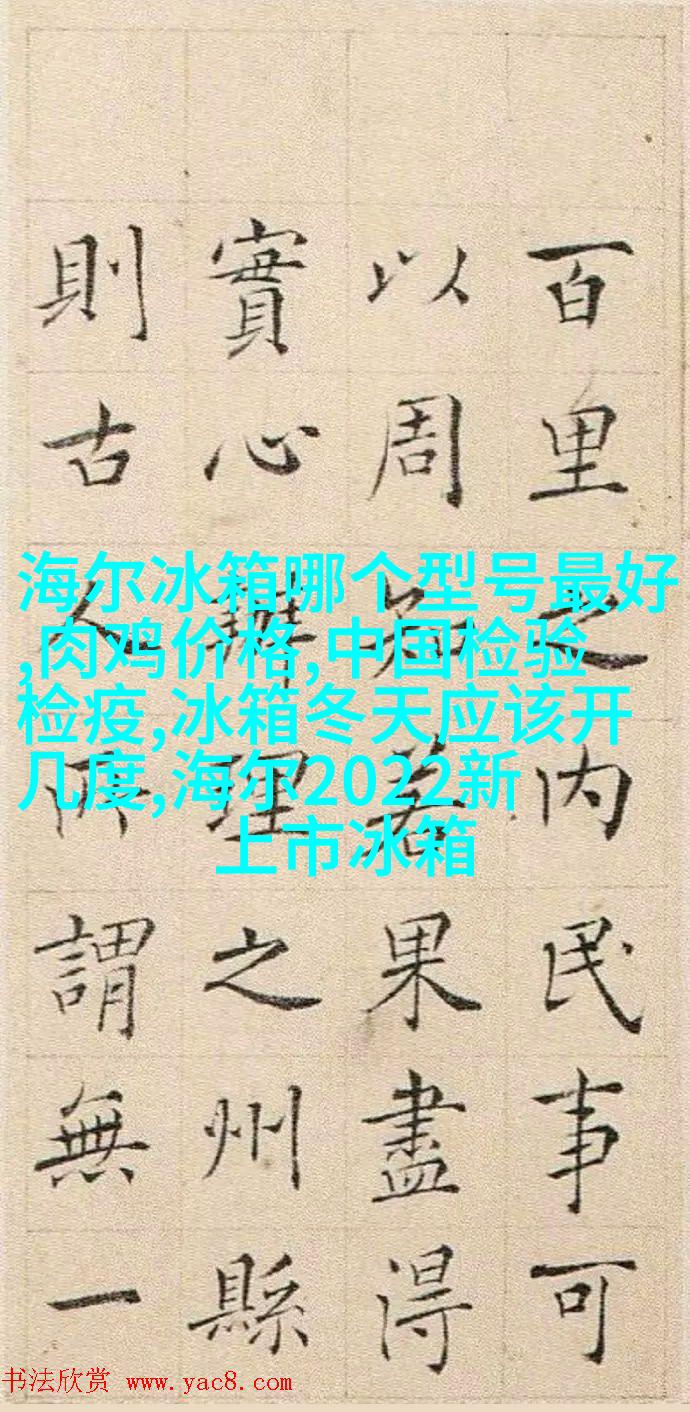 百里之内民事可
以周知若果盡得
實心辦理之州縣
則古人所謂無一
海尔冰箱哪个型号最好
,肉鸡价格,中国检验
检疫,冰箱冬天应该开
几度,海尔2022新
上市冰箱
书法欣赏 www.yac8.com